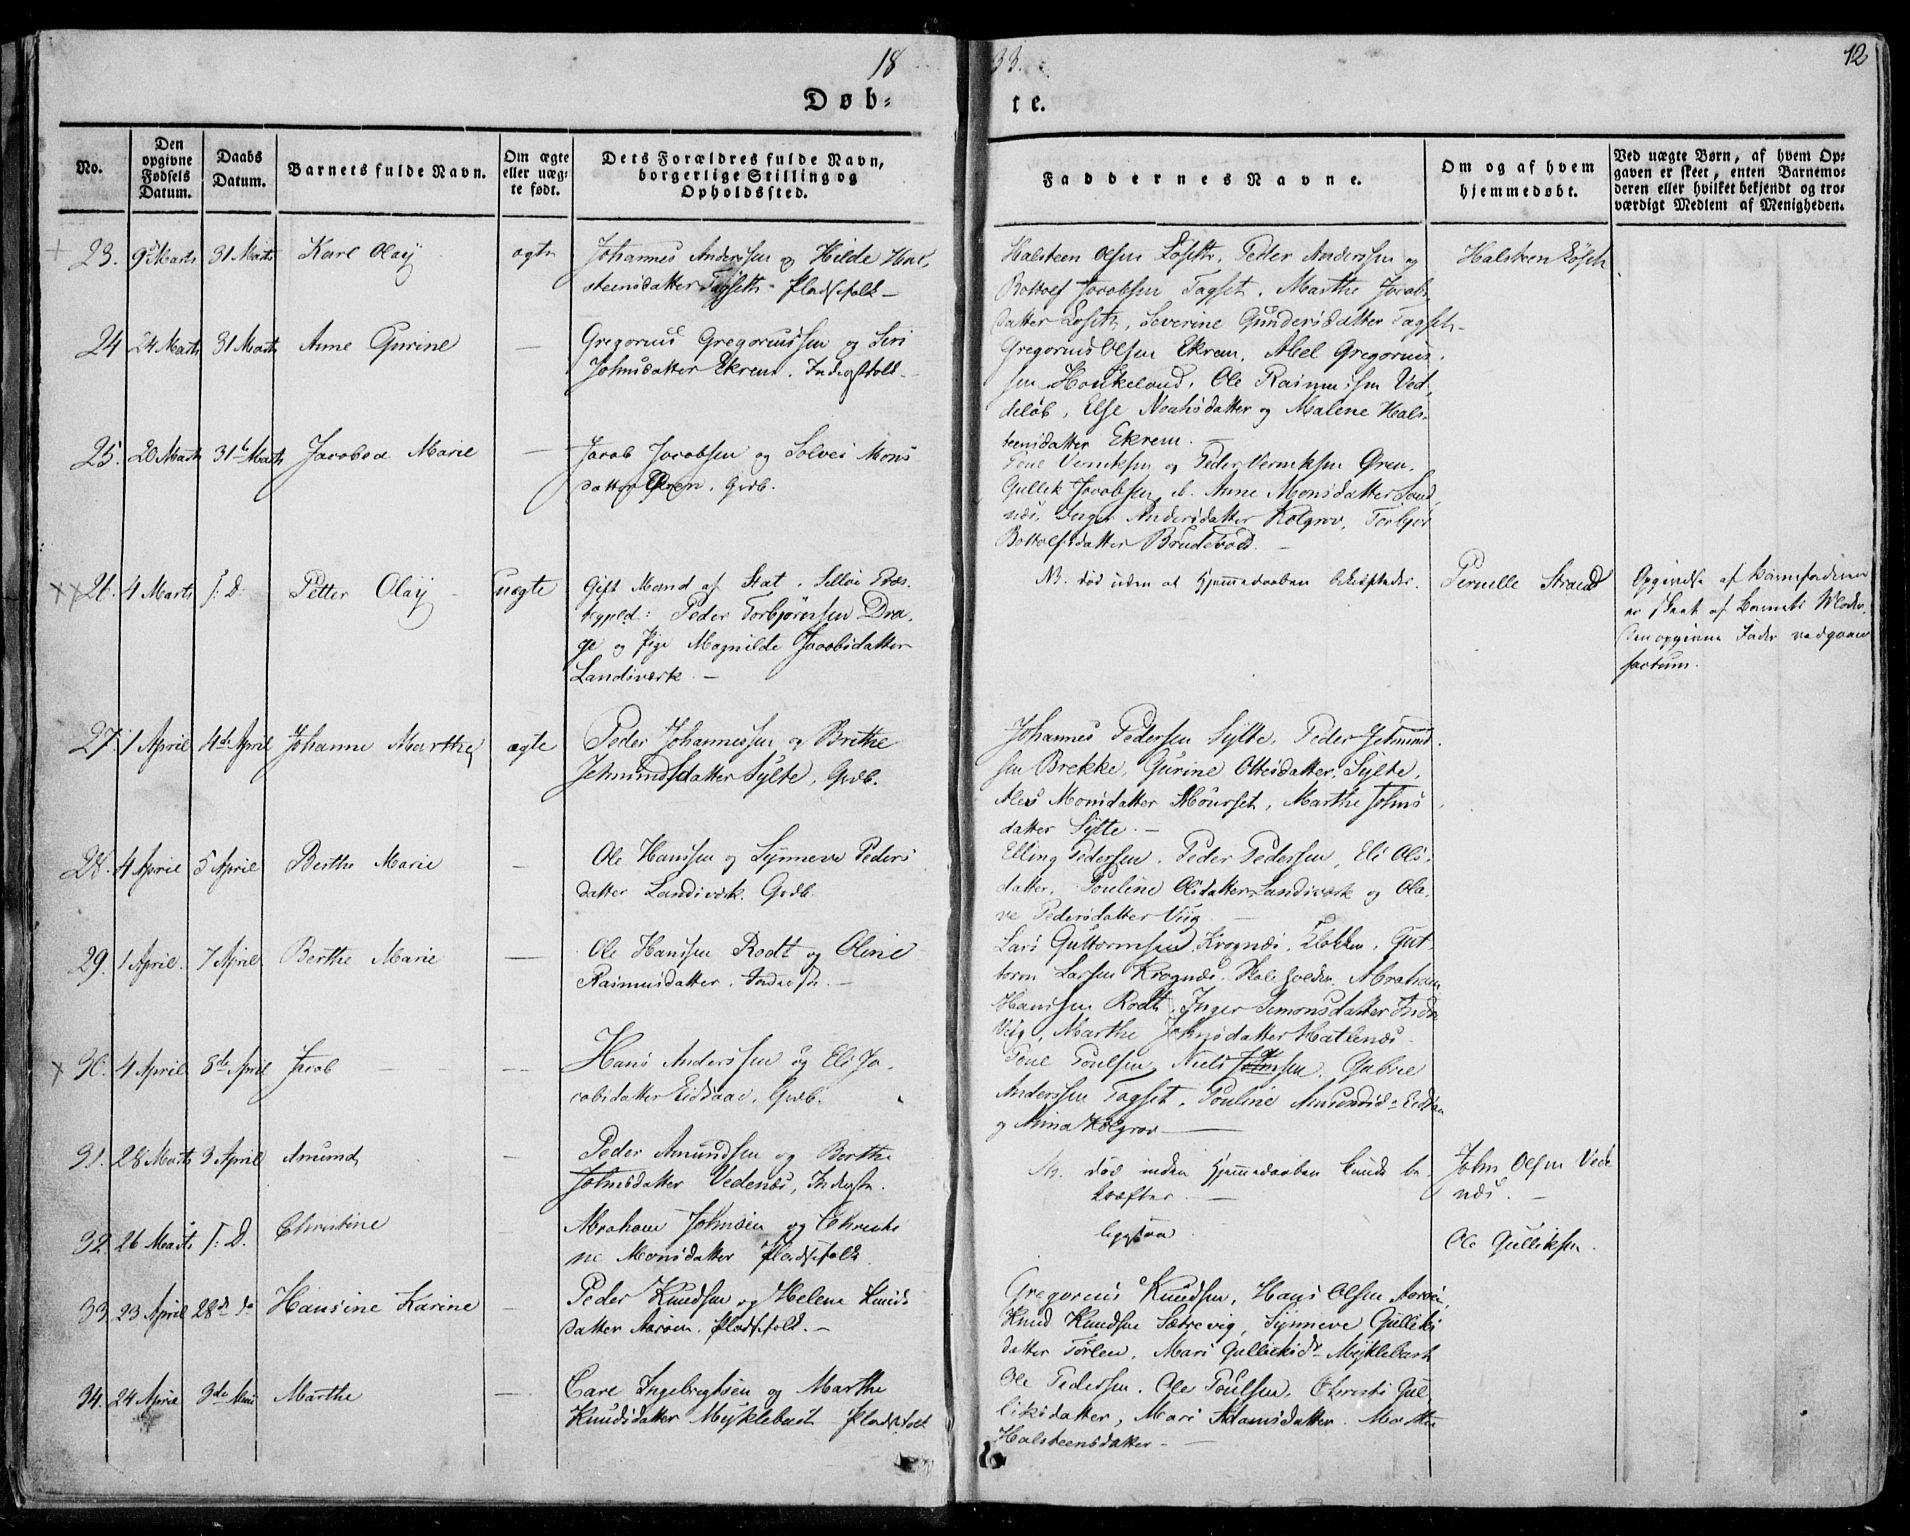 18
33.
12
Døb-
te.
No.
Den opgivne Fødsels Datum.
Daabs Datum.
Barnets fulde Navn.
Om ægte eller uæg-te født.
Dets Forældres fulde Navn, borgerlige Stilling og Opholdssted.
Faddernes Navne.
Om og af hvem hjemmedøbt.
Ved uægte Børn, af hvem Op-gaven er skeet, enten Barnemo-deren eller hvilket bekjendt og tro-værdigt Medlem af Menigheden.
23. 9de Marts 31 Marts Karl Olaÿ ægte
Johannes Anderssen og Hilde Hal-
steensdatter Tagseth. Pladsefolk
Halsteen Olsen Løseth, Peder Anderssen og
Bottolf Jacobsen Tagset. Marthe Jacobs-
datter Løseth, Severine Gundersdatter Tagseth
Halsteen Løseth
24 24 Marts 31 Marts Anne Gurine —
Gregorius Gregoriussen og Siri
Johnsdatter Ekrem. Inderstfolk
Gregorius Olsen Ekrem, Abel Gregorius-
sen Haukeland, Ole Rasmussen Ved-
deløb, Else Noahsdatter og Malene Hals-
teensdatter Ekrem.
25. 20 Marts 31 Marts Jacobea Marie —
Jacob Jacobsen og Solvei Mons
datter Øren. Gdb.
Poul Verniksen og Peder Verniksen Øren.
Gullik Jacobsen, Anne Monsdatter Sand-
næs, Inger Andersdatter Kolgrov, Torbjør
Bottolfsdatter Brudevold.
26. 4 Marts f: D: Petter Olaÿ uægte
Gift Mand af Stat. Selløe Præs-
tegjeld: Peder Torbjørnsen Dra-
ge og Pige Magnilde Jacobsdatter
Landiværk. —
NB. død uden at Hjemmedaaben bekræftedes.
Pernille Strand
Opgivelse af Barnefaderen
er skeet af Barnets Moder.
Den opgivne Fader vedgaaer
factum.
27. 1 April 4de April Johanne Marthe ægte
Peder Johannessen og Brithe
Jetmundsdatter Sylte, Gdb.
Johannes Pedersen Sylte, Peder Jetmund-
sen Brekke, Gurine Ottesdatter Sylte,
Monsdatter Mourset, Marthe Johns
datter Sylte. —
28. 4 April 5 April Berthe Marie —
Ole Hanssen og Synneve Peders
datter Landiværk. Gdb.
Elling Pederssen, Peder Pederssen, Eli Ols-
datter, Pouline Olsdatter Landiværk og Ola-
ve Pedersdatter Viig
29. 1 April 7 April Berthe Marie —
Ole Hanssen Rodt og Oline
Rasmusdatter. Inderste. —
Lars Guttormsen Krognæs, Klokker, Gut-
torm Larsen Krognæs Skoleholder, Abraham
Hanssen Rodt, Inger Simonsdatter Indre
Viig, Marthe Johnsdatter Hatlenæs
30. 4 April 8de April Jacob —
Hans Anderssen og Eli Ja-
cobsdatter Eidsaae. Gdb.
Poul Poulsen, Niels Johnsen, Gabriel
Anderssen Tagset, Pouline Amundsd. Eidsaa
og Anna Kolgrov —
31. 28 Marts 3 April Amund —
Peder Amundsen og Berthe
Johnsdatter Vedenæs, Inderste.
NB. død inden Hjemmedaaben kunde be-
kræftes. —
John Olsen Vede
næs. —
32. 26 Marts f: D. Christine —
Abraham Johnsen og Christi-
ne Monsdatter Pladsefolk
ligesaa
Ole Gulliksen.
33. 23 April 28de do Hansine Karine —
Peder Knudsen og Helene Knuds
datter Aarøen. Pladsefolk. —
Gregorius Knudsen, Hans Olsen Aarøen,
Knud Knudsen Sætrevig, Synneve Gulliks
datter Førlen, Mari Gulliksdr Myklebust
34. 24 April 3de Mai Marthe —
Carl Ingebregtsen og Marthe
Knudsdatter Myklebust Pladsfolk
Ole Pedersen, Ole Poulsen, Christi Gul-
liksdatter, Mari Adamsdatter, Marthe
Halsteensdatter —